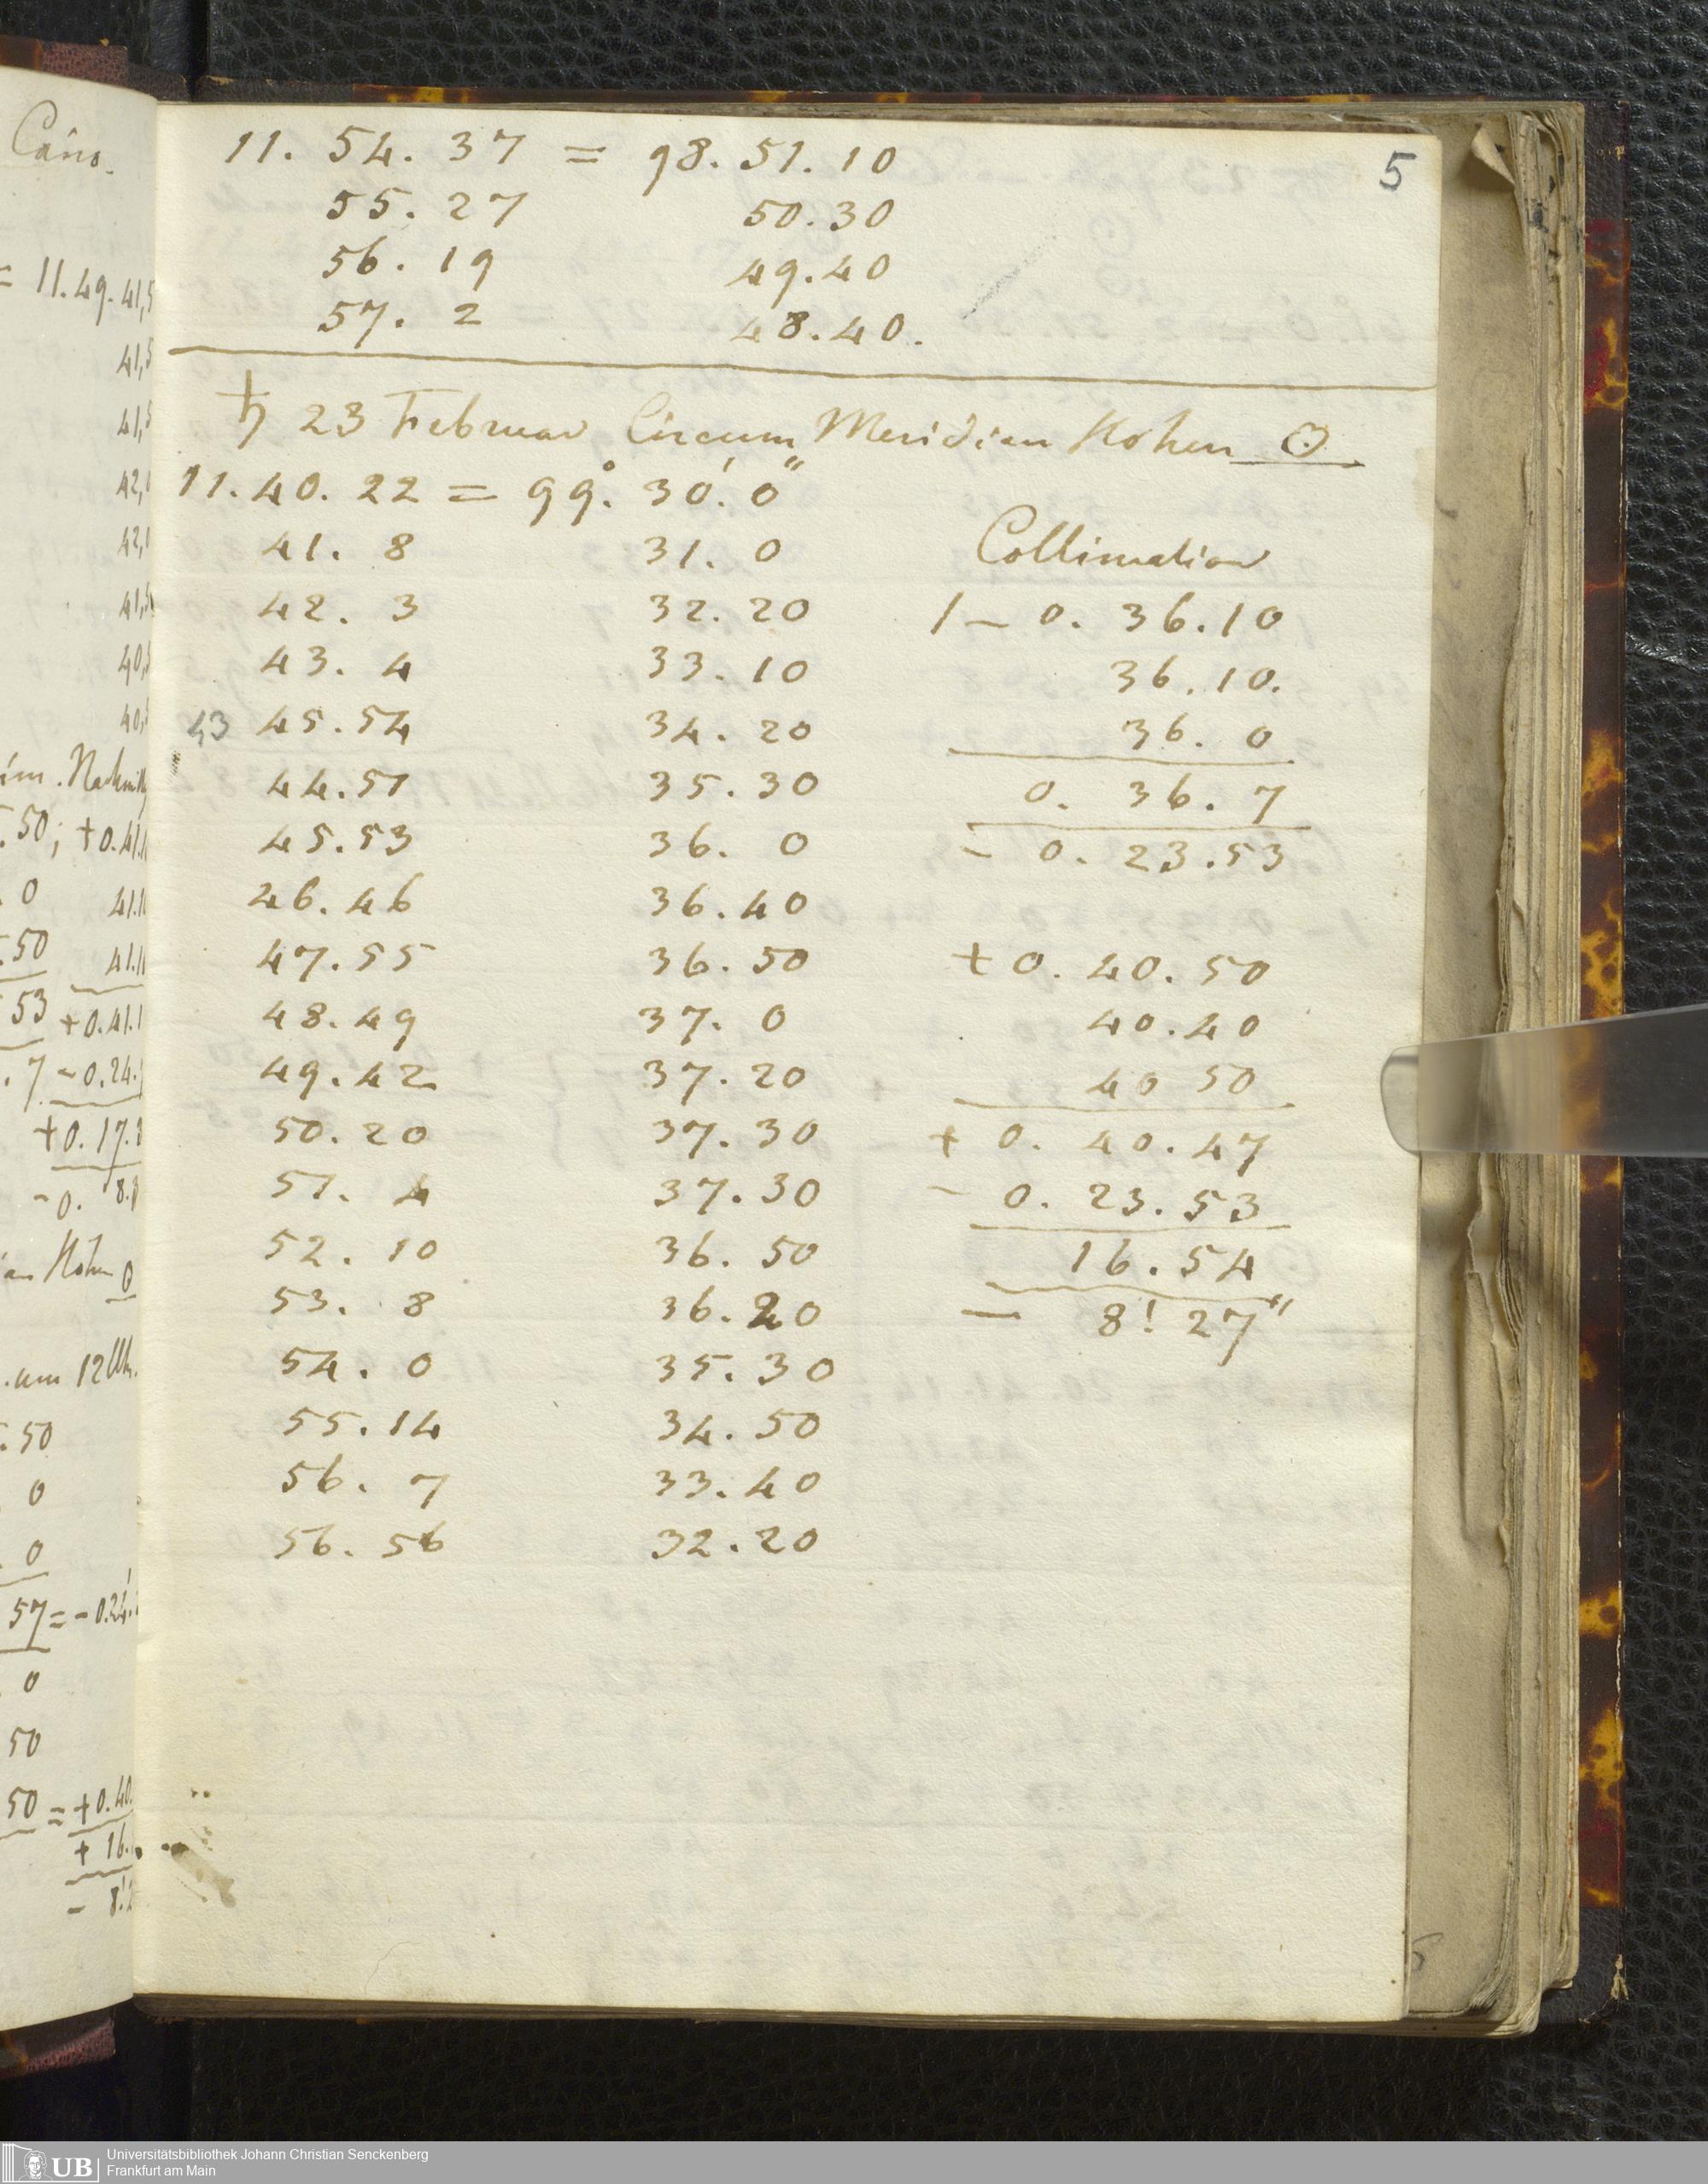 5
11. 54. 37 = 98. 51. 10
55. 27 50. 30
56. 19 49. 40
57. 2 48. 40.
♄ 23 Februar Circum Meridian Höhen ☉
11. 40. 22 = 99°. 30'. 0"
41. 8 31. 0
42. 3 32. 20
43. 4 33. 10
43 45. 54 34. 20
44. 51 35. 30
45. 53 36. 0
46. 46 36. 40
47. 55 36. 50
48. 49 37. 0
49. 42 37. 20
50. 20 37. 30
51. 4 37. 30
52. 10 36. 50
53. 8 36. 20
54. 0 35. 30
55. 14 34. 50
56. 7 33. 40
56. 56 32. 20
Collimation
1 – 0. 36. 10
36. 10.
36. 0
0. 36. 7
– 0. 23. 53
+ 0. 40. 50
40. 40
40 50
+ 0. 40. 47
– 0. 23. 53
16. 54
– 8' 27"
Cairo.
= 11. 49. 41,5
41,5
41,5
50; + 0. 41.
0
50
53 + 0. 41. 1
7 – 0. 24.
+ 0. 17.
– 0. 8.
um 12 Uhr.
50
0
0
57 = – 0. 24.
0
50
50 = + 0. 40.
+ 16.
– 8'
UB Universitätsbibliothek Johann Christian Senckenberg
Frankfurt am Main